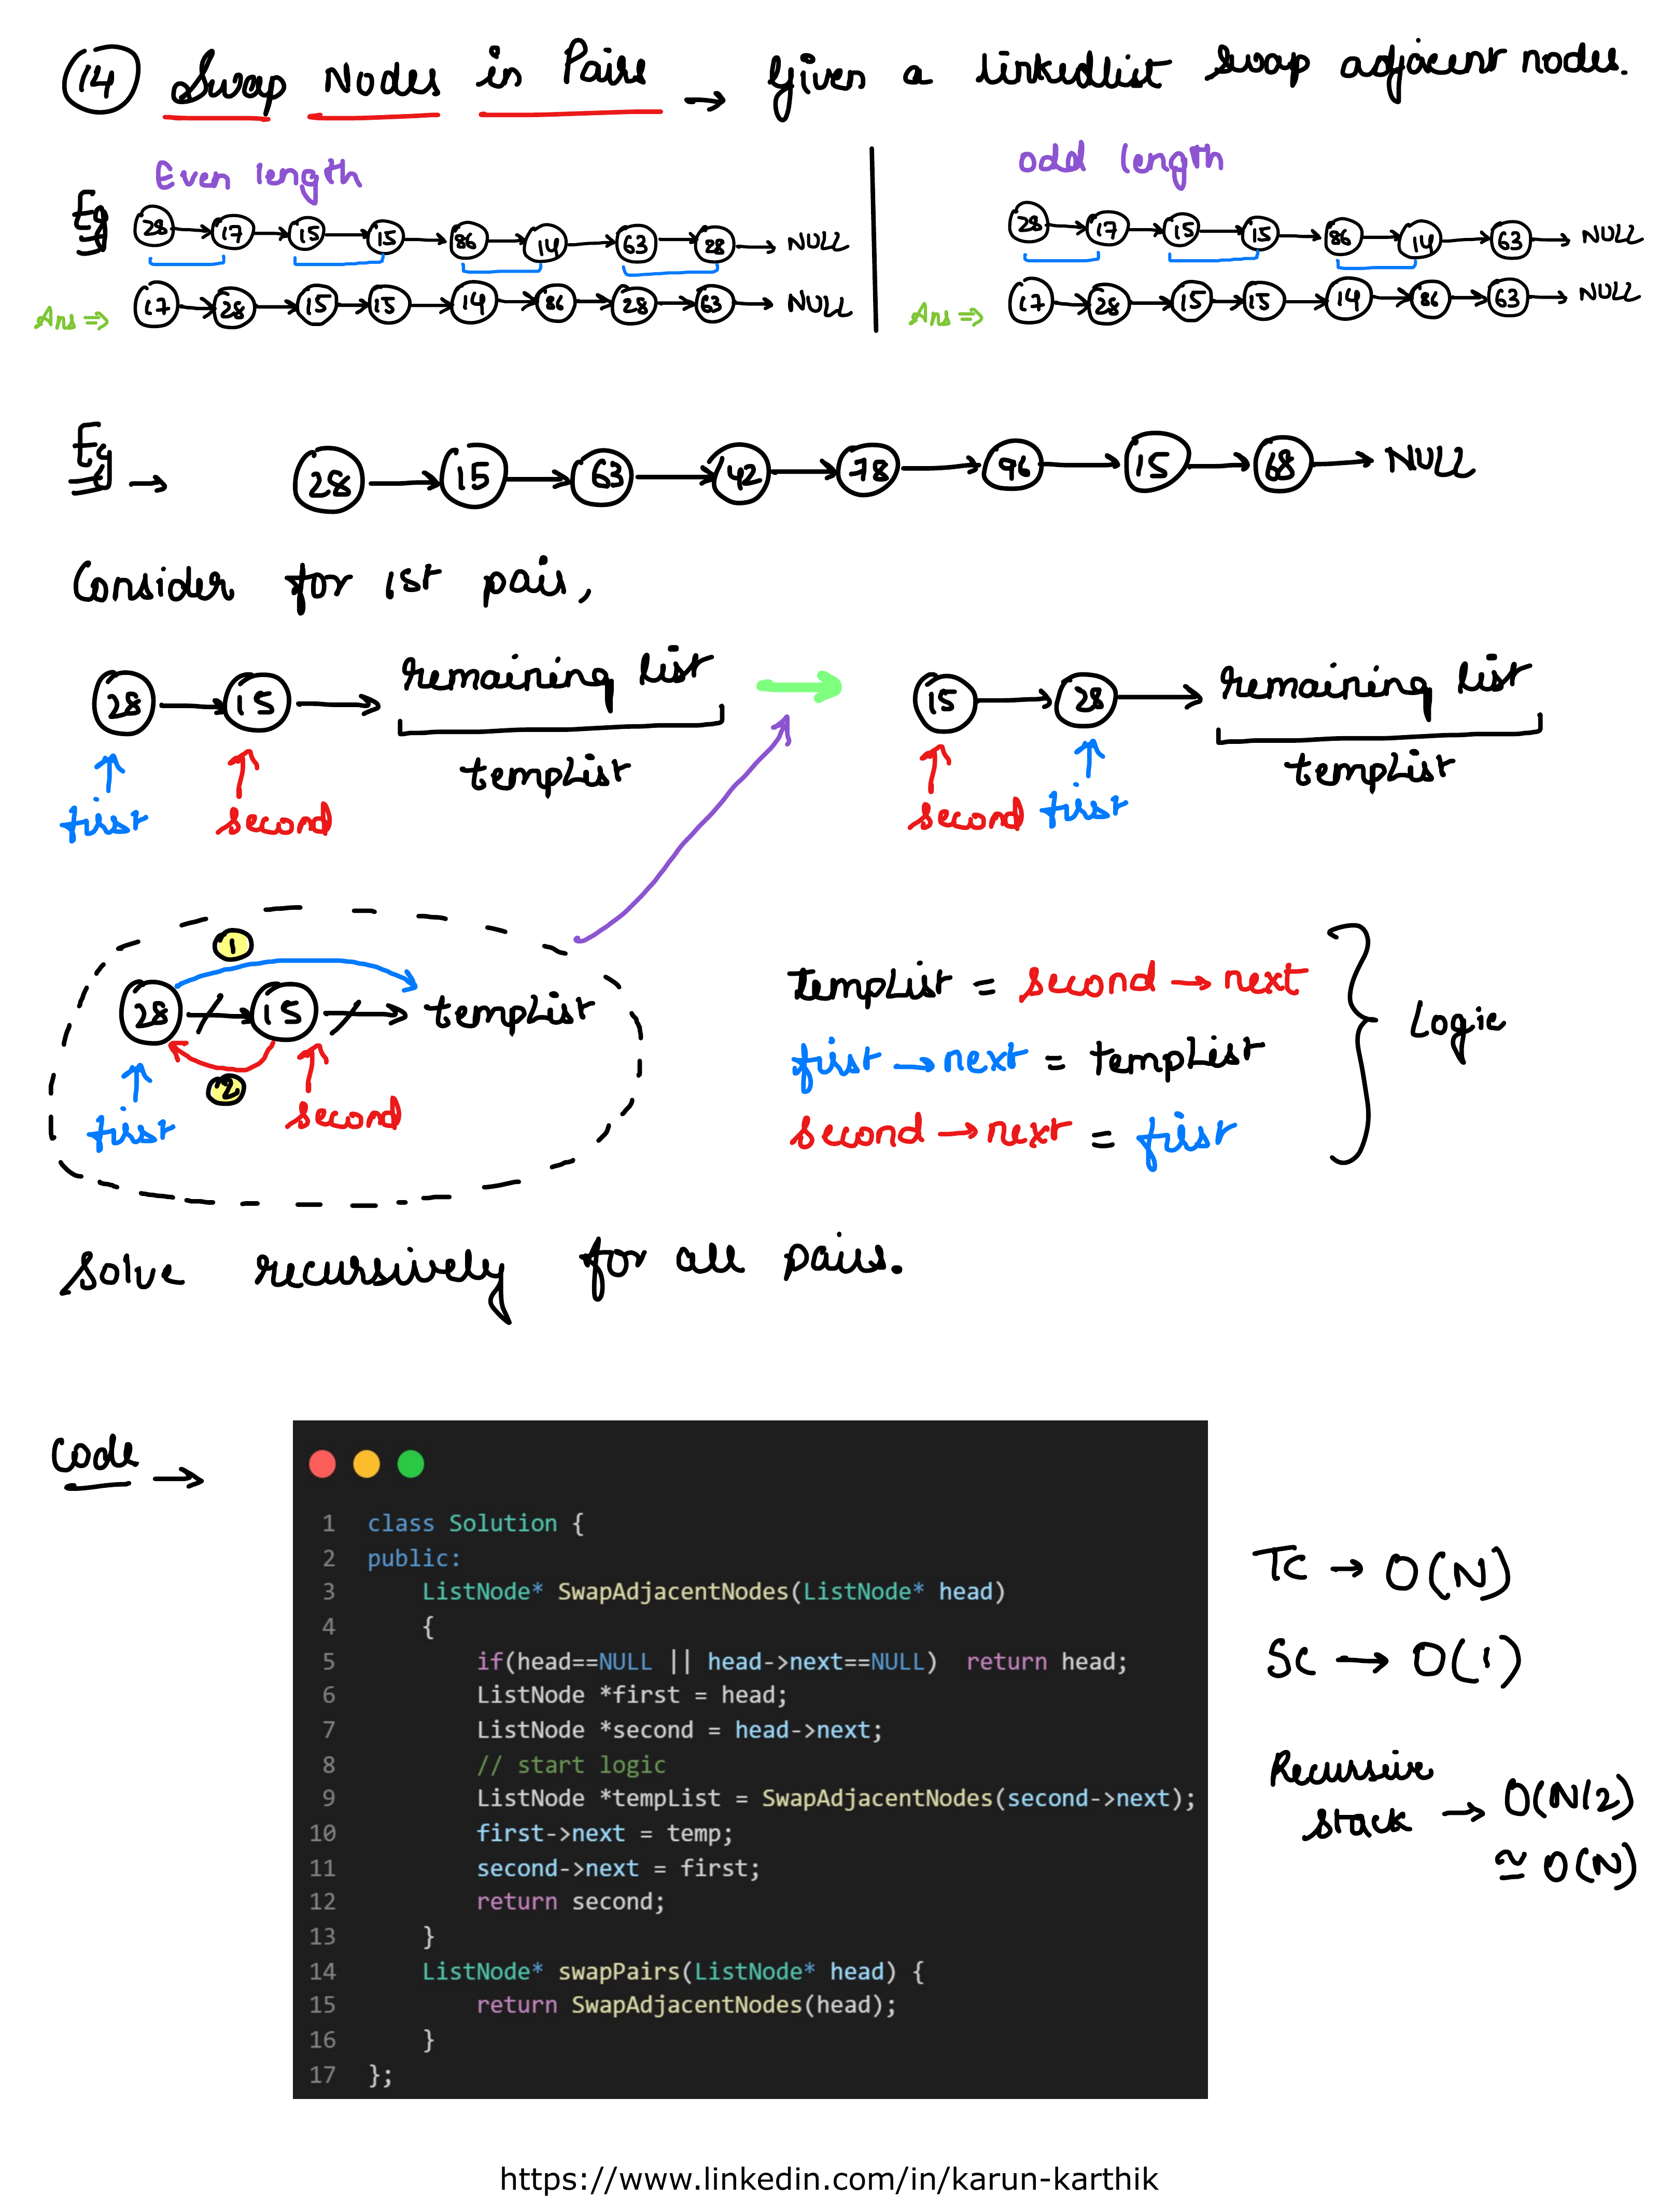 14 Swap Nodes in Pairs → Given a linkedlist swap adjacent nodes.
Even length
Eg 28 → 17 → 15 → 15 → 86 → 14 → 63 → 28 → NULL
Ans ⇒ 17 → 28 → 15 → 15 → 14 → 86 → 28 → 63 → NULL
odd length
28 → 17 → 15 → 15 → 86 → 14 → 63 → NULL
Ans ⇒ 17 → 28 → 15 → 15 → 14 → 86 → 63 → NULL
Eg → 28 → 15 → 63 → 42 → 78 → 96 → 15 → 68 → NULL
Consider for 1st pair,
28 → 15 → remaining list
tempList
first second
15 → 28 → remaining list
tempList
second first
1
28 → 15 → tempList
2
first second
tempList = second → next
first → next = tempList
second → next = first
Logic
Solve recursively for all pairs.
Code →
1 class Solution {
2 public:
3 ListNode* SwapAdjacentNodes(ListNode* head)
4 {
5 if(head==NULL || head->next==NULL) return head;
6 ListNode *first = head;
7 ListNode *second = head->next;
8 // start logic
9 ListNode *tempList = SwapAdjacentNodes(second->next);
10 first->next = temp;
11 second->next = first;
12 return second;
13 }
14 ListNode* swapPairs(ListNode* head) {
15 return SwapAdjacentNodes(head);
16 }
17 };
TC → O(N)
SC → O(1)
Recursive
stack → O(N/2)
≃ O(N)
https://www.linkedin.com/in/karun-karthik